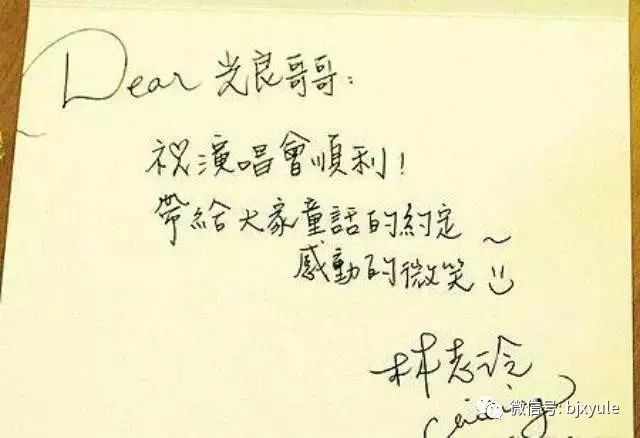 Dear 光良哥哥:
祝演唱會順利!
帶給大家童話的約定~
感動的微笑
林志玲
微信号: bjxyule